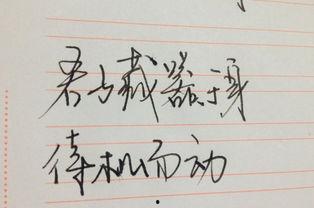 君与载器于身
待机而动